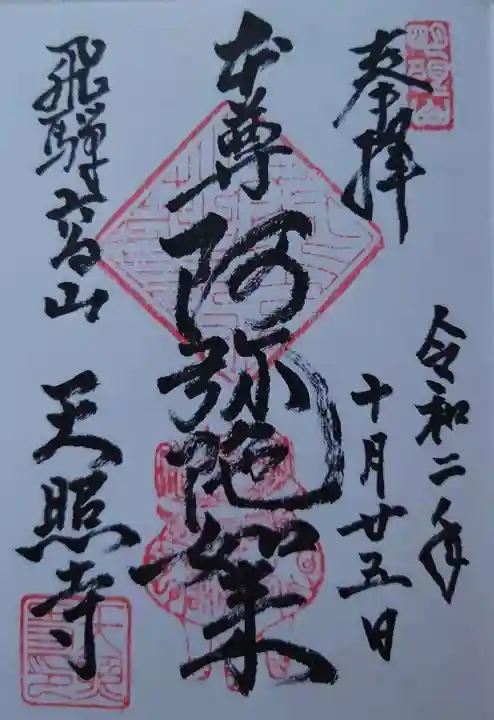 奉拝
令和二年
十月廿五日
本尊 阿弥陀如来
飛騨高山 天照寺